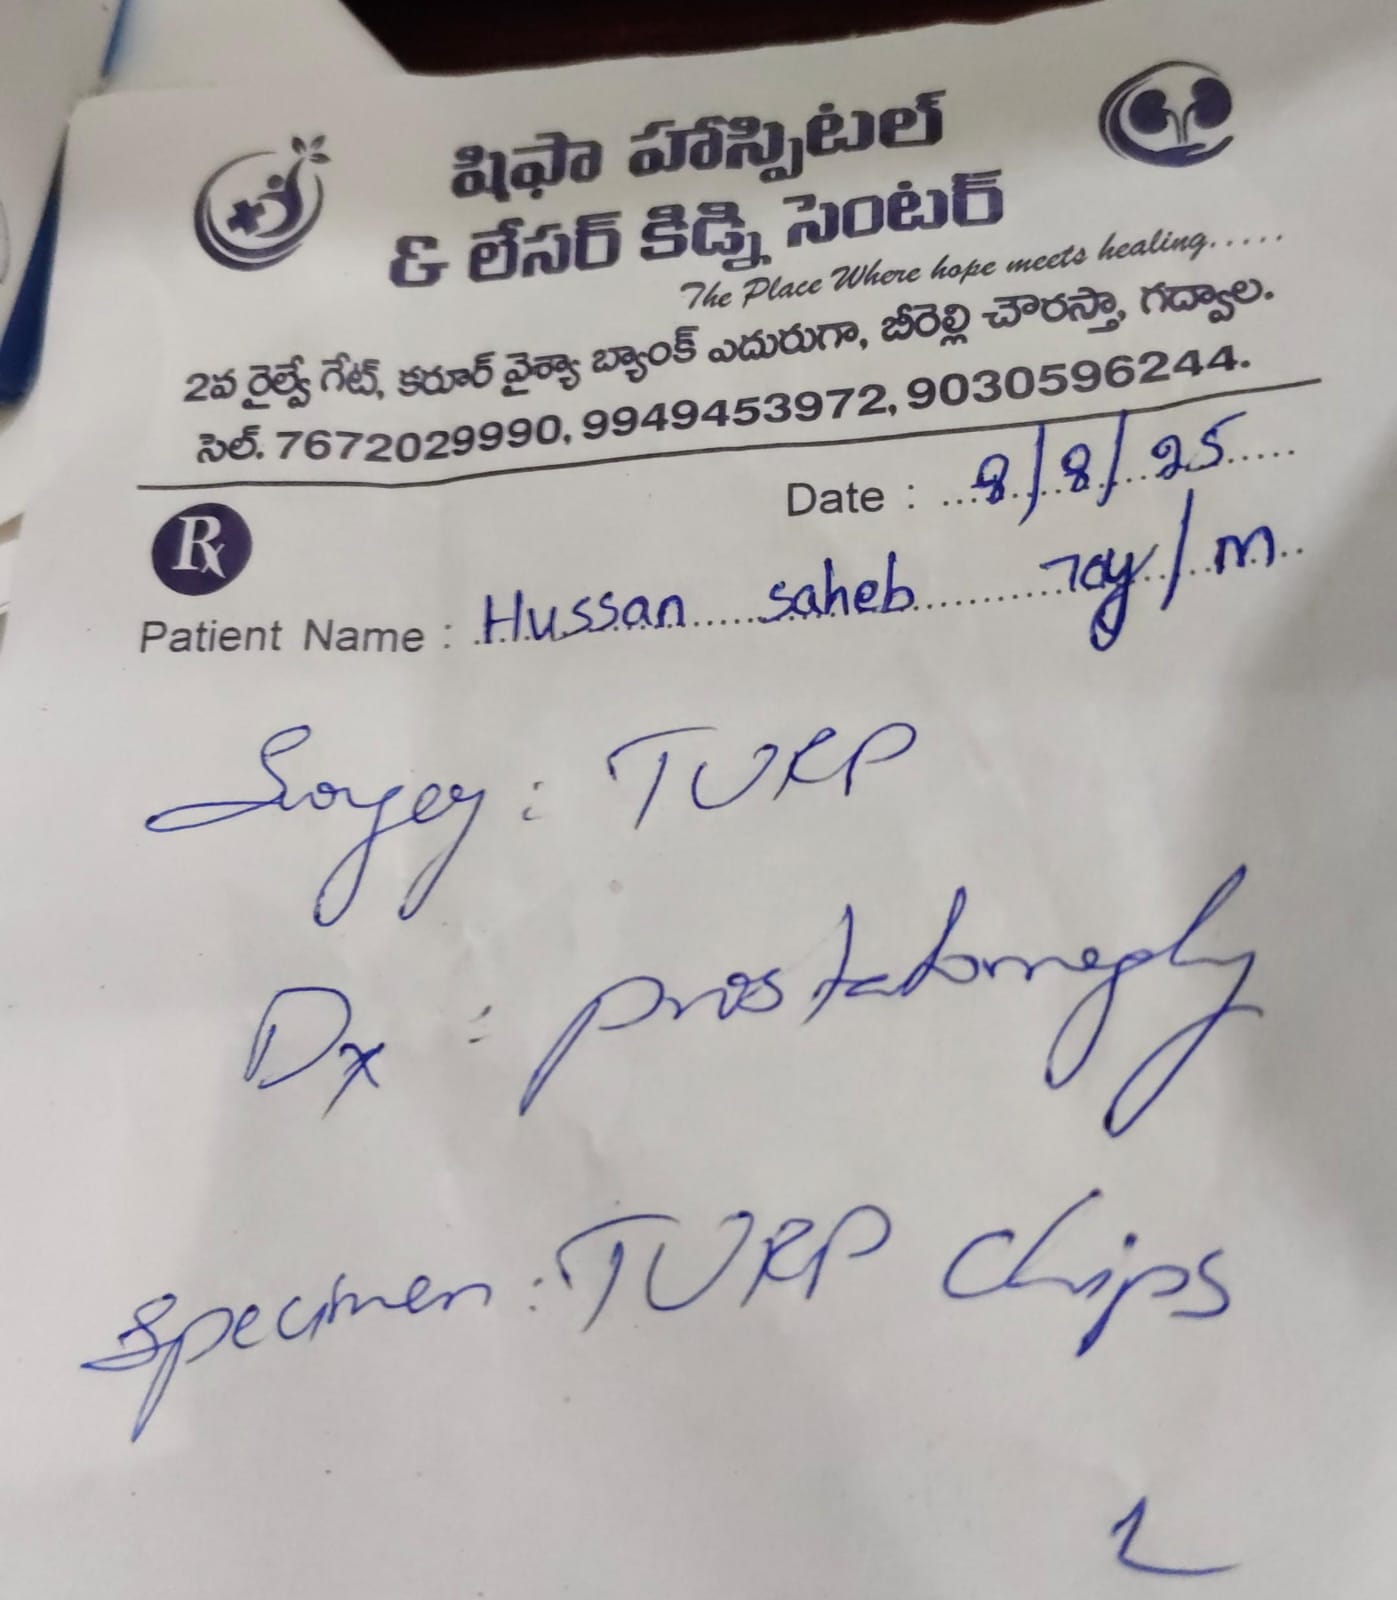 షిఫా హాస్పిటల్
& లేసర్ కిడ్ని సెంటర్
The Place Where hope meets healing.....
2వ రైల్వే గేట్, కరూర్ వైశ్యా బ్యాంక్ ఎదురుగా, బీరెల్లి చౌరస్తా, గద్వాల.
సెల్. 7672029990, 9949453972, 9030596244.
Rx
Date : 8/8/25
Patient Name : Hussan saheb 70y/m
Surgery : TURP
Dx : prostatomegaly
Specimen : TURP chips